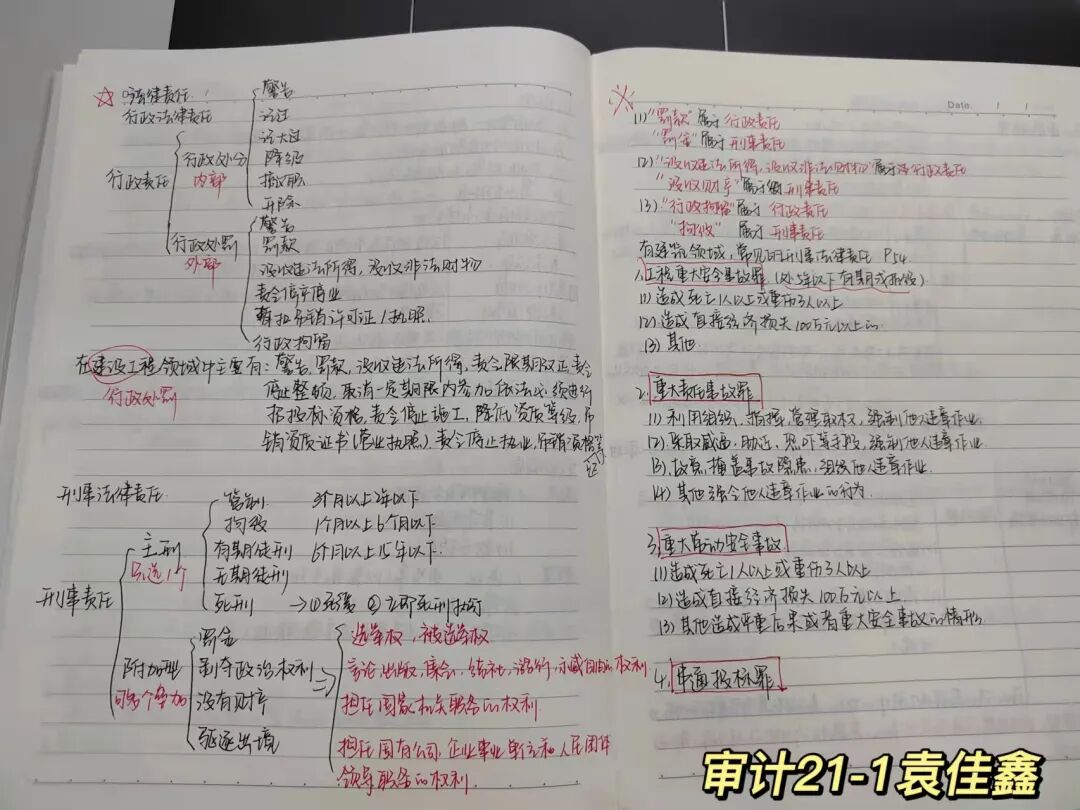 ☆ 法律责任
行政法律责任
行政责任
行政处分
内部
警告
记过
记大过
降级
撤职
开除
行政处罚
外部
警告
罚款
没收违法所得,没收非法财物
责令停产停业
暂扣吊销许可证/执照
行政拘留
在建设工程领域中主要有:警告,罚款,没收违法所得,责令限期改正,责令
行政处罚
停止整顿,取消一定期限内参加依法必须进行
招投标资格,责令停止施工,降低资质等级,吊
销资质证书(营业执照),责令停止执业,吊销资格等
刑事法律责任
刑事责任
主刑
只选1个
管制 3个月以上2年以下
拘役 1个月以上6个月以下
有期徒刑 6个月以上15年以下
无期徒刑
死刑 →①死缓 ②立即死刑执行
附加刑
可多个参加
罚金
剥夺政治权利
没有财产
驱逐出境
选举权,被选举权
言论,出版,集会,结社,游行,示威自由的权利
担任国家机关职务的权利
担任国有公司,企业事业单位和人民团体
领导职务的权利
Date. / /
(1)"罚款"属于 行政责任
"罚金"属于 刑事责任
(2)"没收违法所得,没收非法财物"属于行政责任
"没收财产"属于刑事责任
(3)"行政拘留"属于 行政责任
"拘役" 属于 刑事责任
在建筑领域,常见的刑事法律责任 P14.
1.工程重大安全事故罪 (处5年以下有期或拘役)
(1)造成死亡1人以上或重伤3人以上
(2)造成直接经济损失100万元以上的
(3)其他
2.重大责任事故罪
(1)利用组织、指挥、管理职权,强制他人违章作业
(2)采取威逼,胁迫,恐吓等手段,强制他人违章作业
(3)故意掩盖事故隐患,组织他人违章作业
(4)其他强令他人违章作业的行为
3.重大劳动安全事故
(1)造成死亡1人以上或重伤3人以上
(2)造成直接经济损失100万元以上
(3)其他造成严重后果或者重大安全事故的情形
4.串通投标罪
审计21-1袁佳鑫